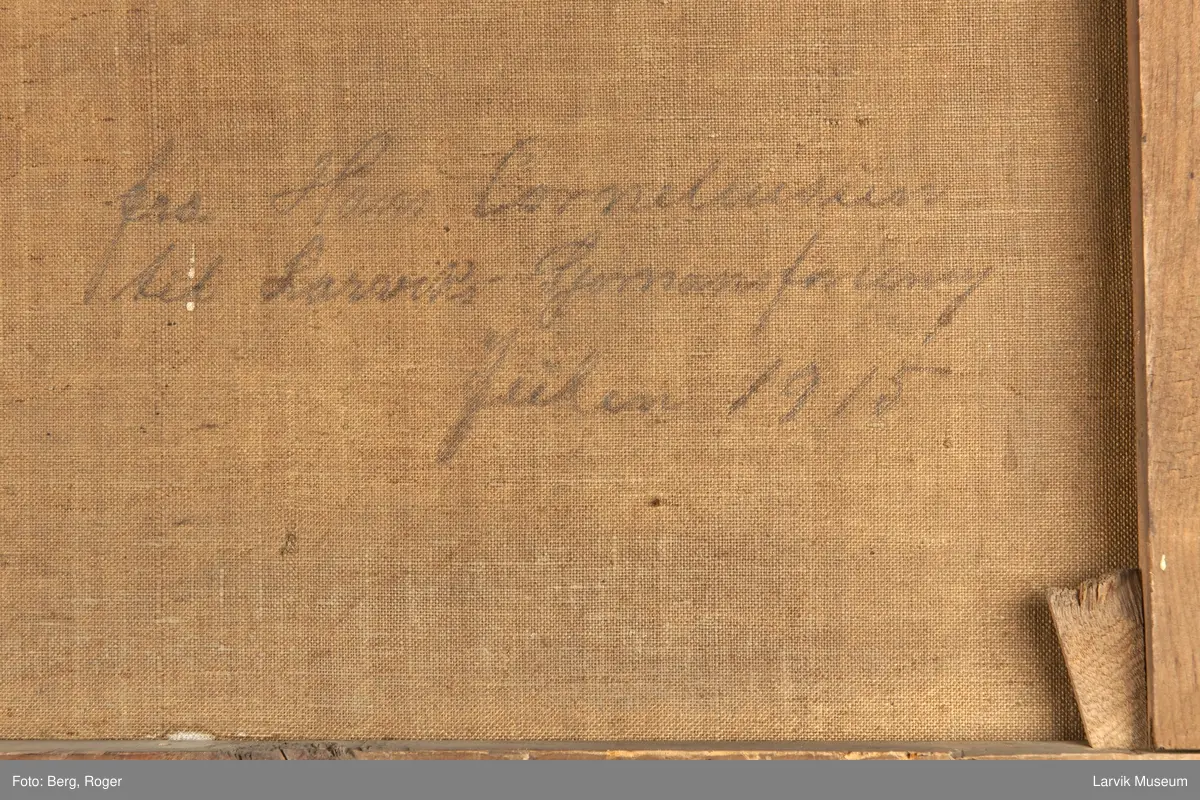 fra Hans Corneliussen
til Larviks Sømansforening
Julen 1915
Foto: Berg, Roger
Larvik Museum